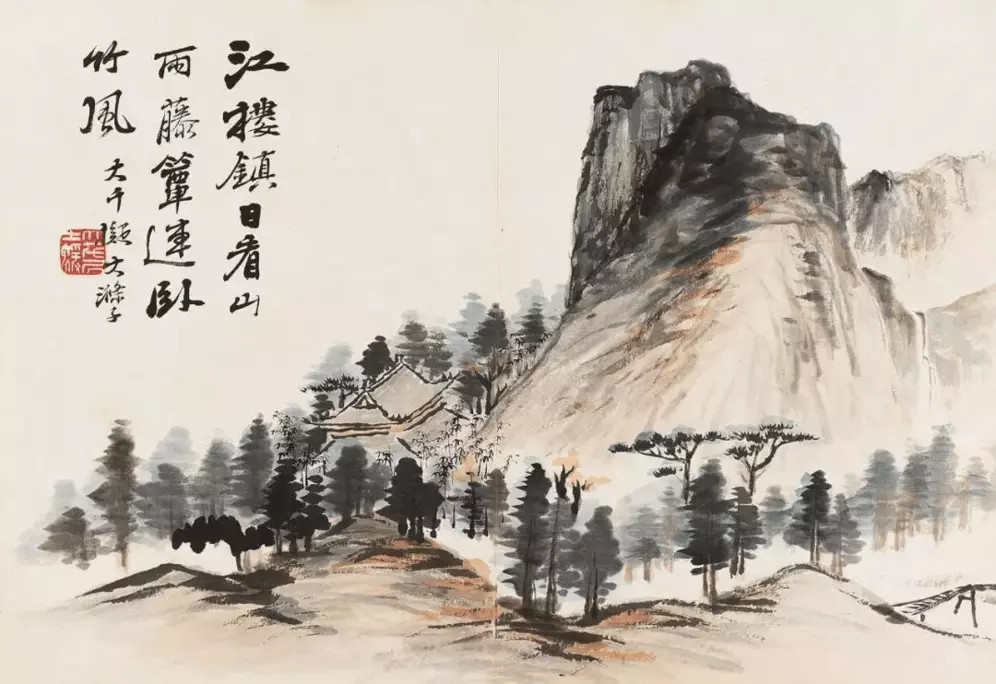 江樓鎮日看山
雨藤簟連臥
竹風 大千擬大滌子